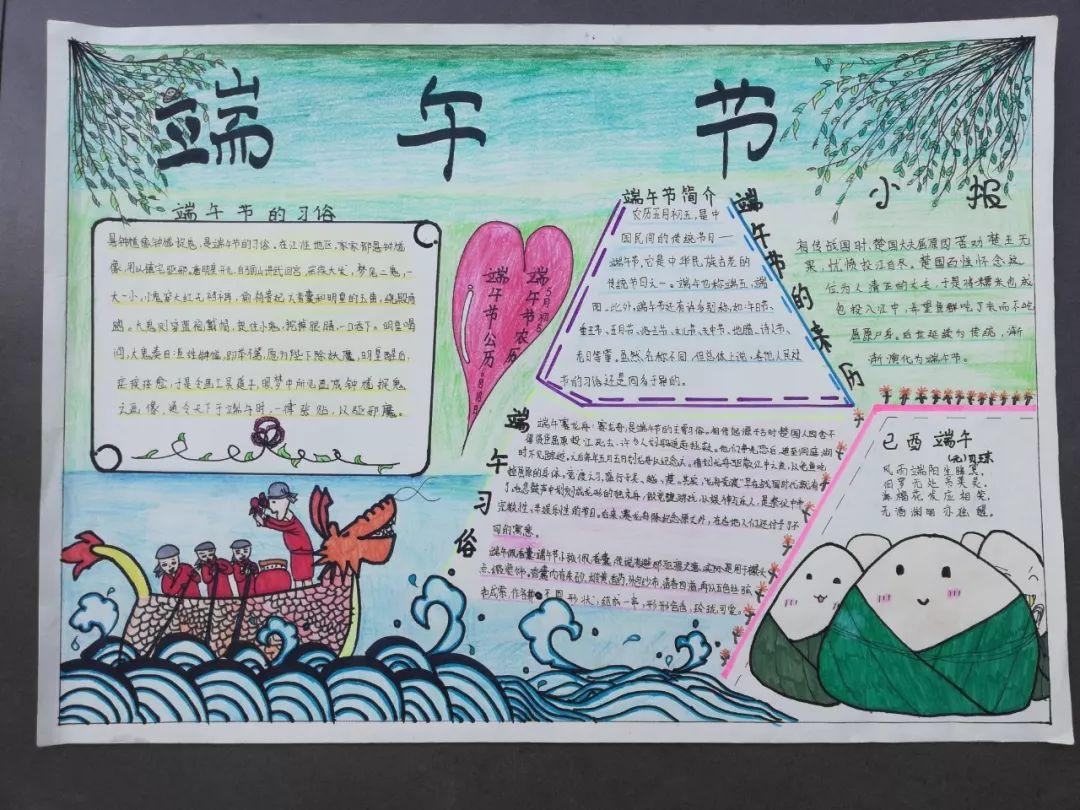 端午节
小报
端午节的习俗
悬钟馗像钟馗捉鬼,是端午节的习俗。在江淮地区,家家都悬钟馗
像,用以镇宅驱邪。唐明皇开元,自骊山讲武回宫,疟疾大发,梦见二鬼,一
大一小,小鬼穿大红无裆裤,偷杨贵妃之香囊和明皇的玉笛,绕殿而
跑。大鬼则穿蓝袍戴帽,捉住小鬼,挖掉眼睛,一口吞下。明皇喝
问,大鬼奏曰:臣姓钟馗,即武举不第,愿为陛下除妖魔,明皇醒后,
疟疾痊愈,于是令画工吴道子,照梦中所见画成钟馗捉鬼
之画像,通令天下于端午时,一律张贴,以驱邪魔。
端午节农历
5月初5
端午节公历
6月18日
端午节简介
农历五月初五,是中
国民间的传统节日——
端午节,它是中华民族古老的
传统节日之一。端午也称端五,端
阳。此外,端午节还有许多别称,如:午日节、
重五节、五月节、浴兰节、女儿节、天中节、地腊、诗人节、
龙日等等。虽然名称不同,但总体上说,各地人民过
节的习俗还是同多于异的。
端午节的来历
相传战国时,楚国大夫屈原因苦劝楚王无
果,忧愤投江自尽。楚国百姓怀念这
位为人清正的大夫,于是将糯米也成
包投入江中,希望鱼鲜吃了米而不吃
屈原尸身。后世延续为传统,渐
渐演化为端午节。
端午习俗
端午赛龙舟:赛龙舟,是端午节的主要习俗。相传起源于古时楚国人因舍不
得贤臣屈原投江死去,许多人划船追赶拯救。他们争先恐后,追至洞庭湖
时不见踪迹。之后每年五月五日划龙舟以纪念之。借划龙舟驱散江中之鱼,以免鱼吃
掉屈原的身体。竞渡之习,盛行于吴、越、楚。其实,"龙舟竞渡"早在战国时代就有
了。在急鼓声中划刻成龙形的独木舟,做竞渡游戏,以娱神与乐人,是祭仪中半
宗教性、半娱乐性的节目。后来,赛龙舟除纪念屈原之外,在各地人们还付予了不
同的寓意。
端午佩香囊:端午节小孩佩香囊,传说有避邪驱瘟之意,实际是用于襟头
点缀装饰。香囊内有朱砂、雄黄、香药,外包以丝布,清香四溢,再以五色丝线弦
扣成索,作各种不同形状,结成一串,形形色色,玲珑可爱。
己酉端午
(元)贝琼
风雨端阳生晦冥,
汨罗无处吊英灵。
海榴花发应相笑,
无酒渊明亦独醒。